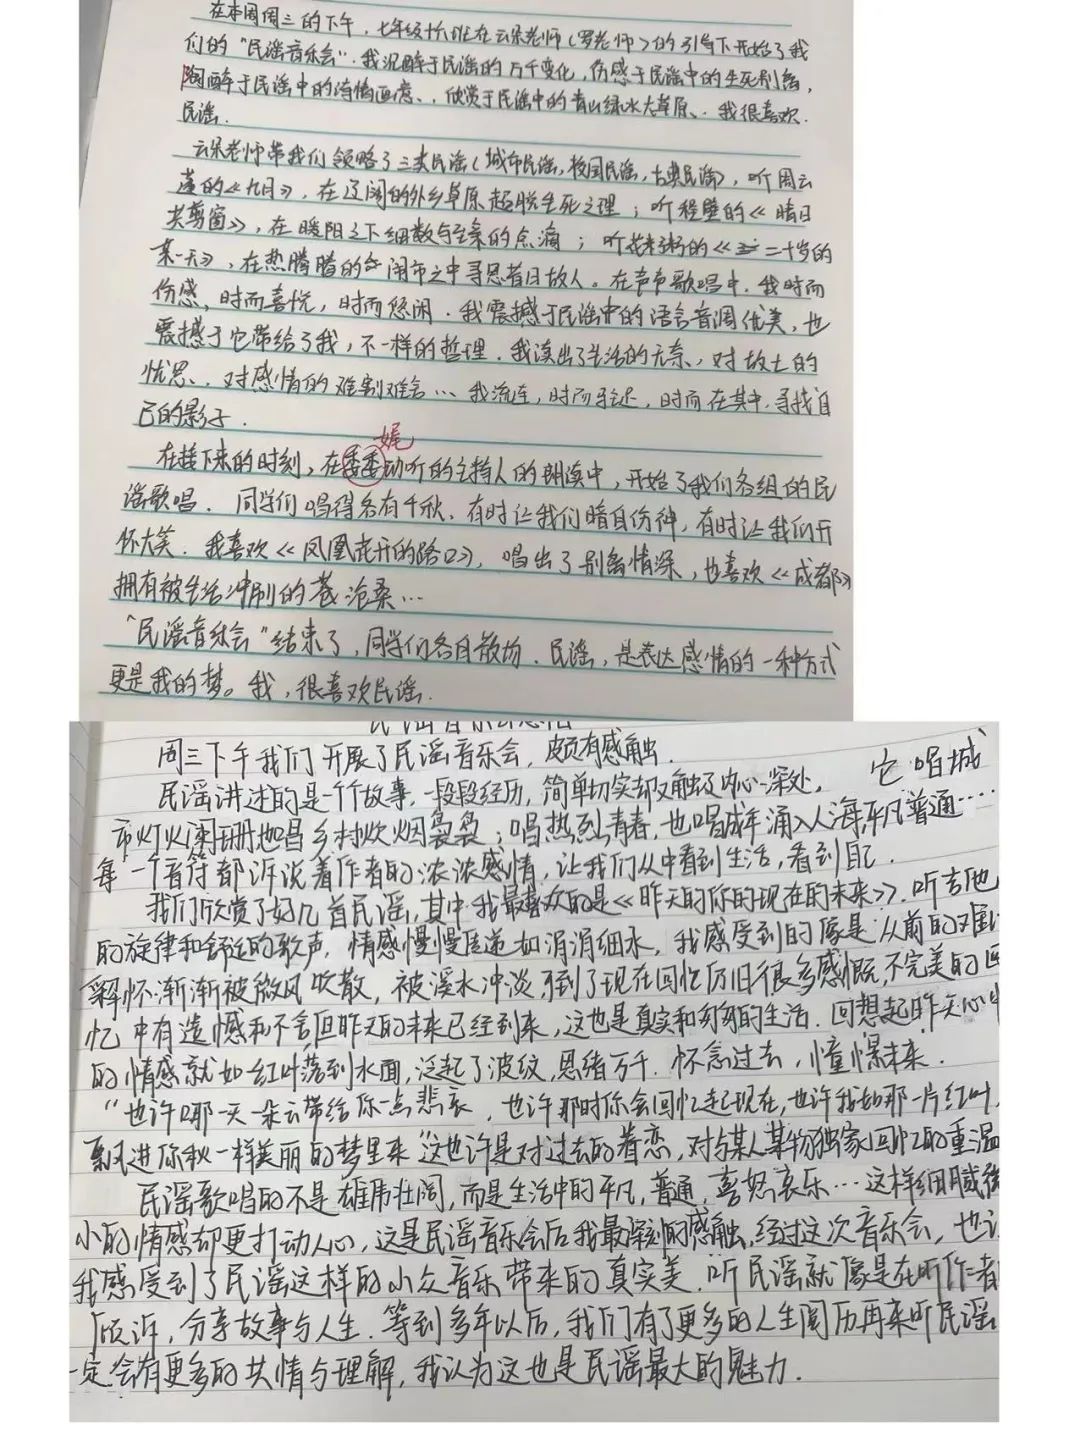 在本周周三的下午，七年级十八班在云朵老师（罗老师）的引导下开始了我
们的“民谣音乐会”．我沉醉于民谣的万千变化，伤感于民谣中的生死别离，
陶醉于民谣中的诗情画意、欣赏于民谣中的青山绿水大草原、我很喜欢
民谣．
云朵老师带我们领略了三类民谣（城市民谣，校园民谣，古典民谣），听周云
蓬的《九月》，在辽阔的外乡草原超脱生死之理；听程璧的《晴日
共剪窗》，在暖阳之下细数与至亲的点滴；听花粥的《二十岁的
某一天》，在热腾腾的闹市之中寻思昔日故人。在声声歌唱中，我时而
伤感、时而喜悦，时而悠闲．我震撼于民谣中的语言音调优美，也
震撼于它带给了我，不一样的哲理．我读出了生活的无奈、对故土的
忧思、对感情的难割难舍…我流连，时而，时而在其中寻找自
己的影子．
娓
在接下来的时刻，在委委动听的主持人的朗读中，开始了我们各组的民
谣歌唱．同学们唱得各有千秋，有时让我们暗自伤神，有时让我们开
怀大笑．我喜欢《凤凰花开的路口》，唱出了别离情深，也喜欢《成都》
拥有被生活冲刷的苍沧桑…
“民谣音乐会”结束了，同学们各自散场．民谣，是表达感情的一种方式
更是我的梦。我，很喜欢民谣．
周三下午我们开展了民谣音乐会，颇有感触．
民谣讲述的是一个个故事，一段段经历，简单切实却又触及内心深处，它唱城
市灯火阑珊也唱乡村炊烟袅袅；唱热烈青春，也唱成年涌入人海，平凡普通……
每一个音符都诉说着作者的浓浓感情，让我们从中看到生活，看到自己．
我们欣赏了好几首民谣，其中我最喜欢的是《昨天的你的现在的未来》．听吉他
的旋律和舒缓的歌声，情感慢慢传递如涓涓细水，我感受到的像是从前的难以
释怀渐渐被微风吹散，被溪水冲淡，到了现在回忆仍旧很多感慨，不完美的回
忆中有遗憾和不舍，但昨天的未来已经到来，这也是真实和匆匆的生活．回想起昨天心中
的情感就如红叶落到水面，泛起了波纹，思绪万千．怀念过去，憧憬未来．
“也许哪一天一朵云带给你一点悲哀，也许那时你会回忆起现在，也许我如那一片红叶，
飘进你秋一样美丽的梦里来”这也许是对过去的眷恋，对与某人某物独家回忆的重温
民谣歌唱的不是雄伟壮阔，而是生活中的平凡，普通，喜怒哀乐…这样细腻微
小的情感却更打动人心，这是民谣音乐会后我最深刻的感触，经过这次音乐会，也让
我感受到了民谣这样的小众音乐带来的真实美．听民谣就像是在听作者
倾诉，分享故事与人生．等到多年以后，我们有了更多的人生阅历再来听民谣
一定会有更多的共情与理解，我认为这也是民谣最大的魅力．